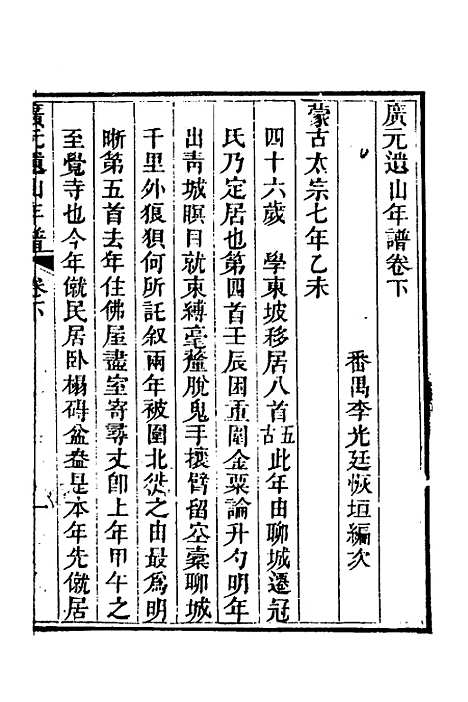 廣元遺山年譜卷下
番禺李光廷恢垣編次
蒙古太宗七年乙未
四十六歲　學東坡移居八首五古此年由聊城遷冠
氏乃定居也第四首壬辰困重圍金粟論升勺明年
出靑城瞑目就束縛毫釐脫鬼手攘臂留空槖聊城
千里外狼狽何所託叙兩年被圍北徙之由最爲明
晰第五首去年住佛屋盡室寄尋丈卽上年甲午之
至覺寺也今年僦民居臥榻礙盆盎是本年先僦居
廣元遺山年譜　卷下　一